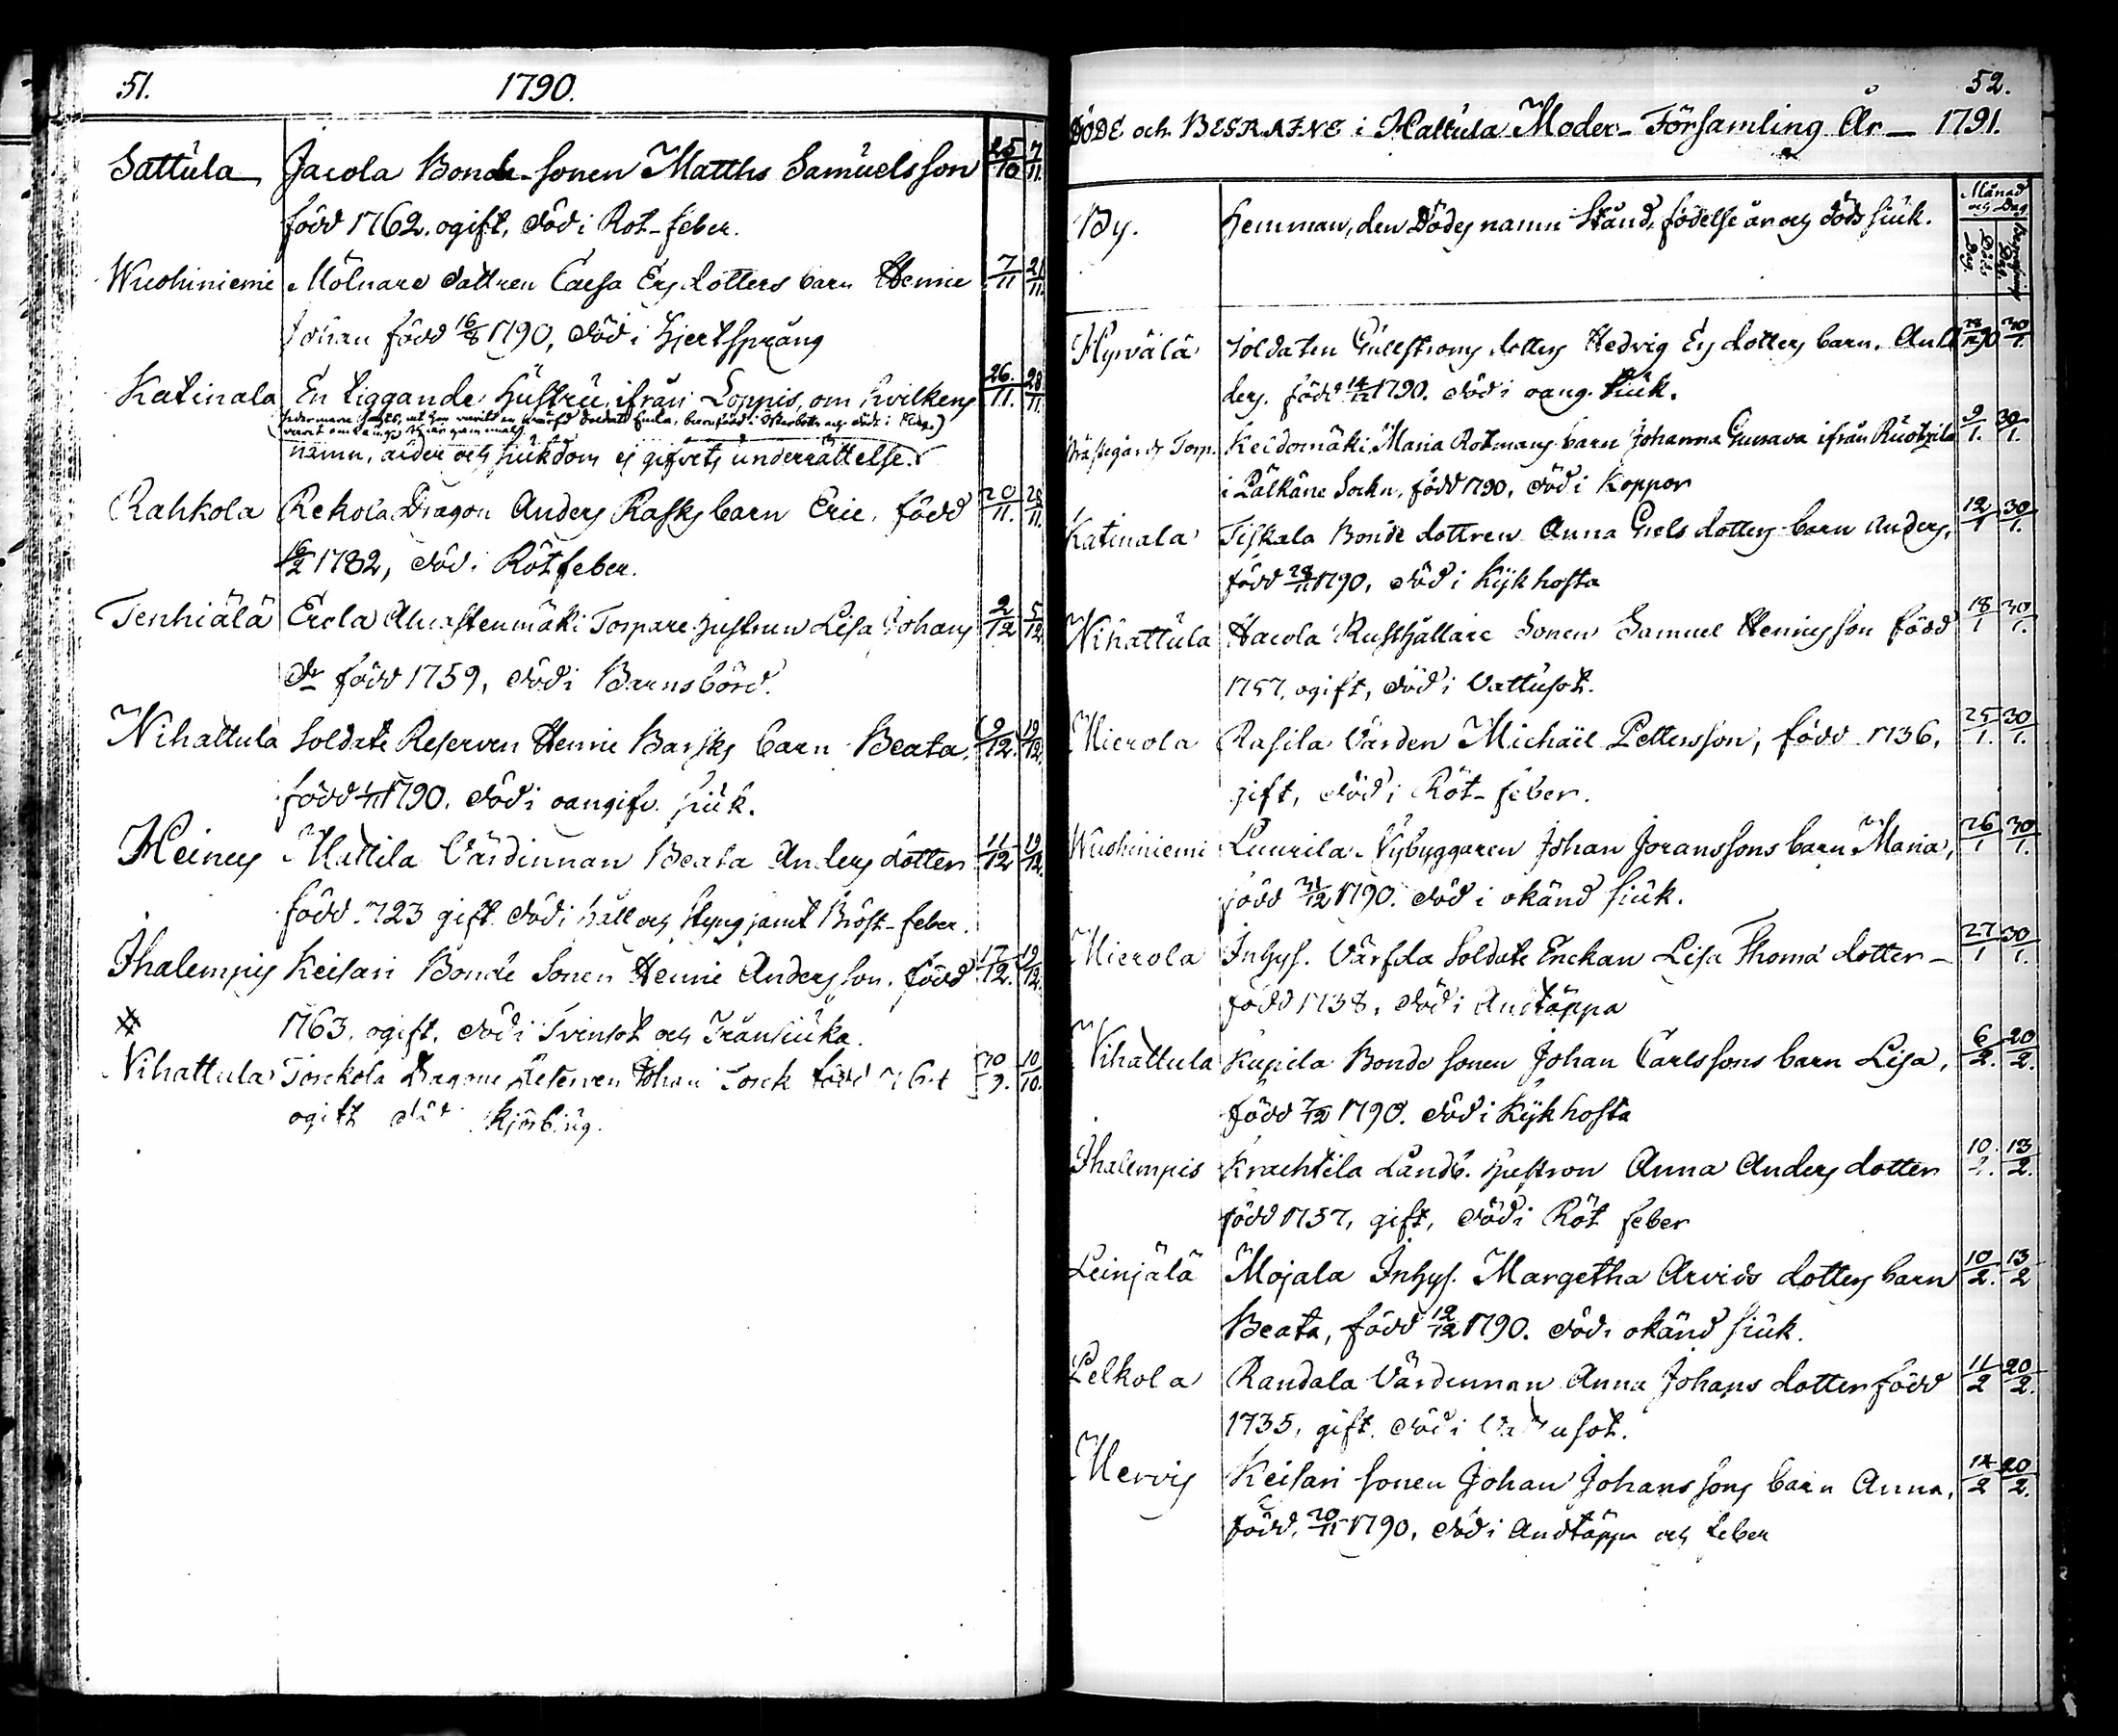 51. 1790.
Sattula Jacola Bonde-sonen Matths Samuelsson 25/10 7/11.
född 1762. ogift, död i Röt-feber.
Wuohiniemi Mölnare dattren Caisa Ersdotters barn Henric 7/11 21/11.
Johan född 16/8 1790, död i Hjertsprång
Katinala En tiggande Hustru, ifrån Loppis, om hvilkens 26./11. 28/11.
namn, ålder och siukdom ej gifvets underrättelse.
Rahkola Rekola Dragon Anders Rasks barn Eric, född 20/11. 28/11.
16/2 1782, död i Rötfeber.
Tenhiälä Erola Torpare hustrun Lisa Johans 2/12 5/12
Dr född 1759, död i Barnsbörd.
Nihattula Soldate Reserven Henric Barsks barn Beata, 9/12. 19/12.
född 1790. död i oangifv. siuk.
Heineis Mattila Värdinnan Beata Anders dotter 11/12 19/12.
född 1723 gift. död i håll och styng samt Bröst-feber.
Ihalempis Keisari Bonde Sonen Henric Andersson. född 17/12. 19/12.
1763. ogift. död i Tvinsot och Trånsiuka.
Nihattula Reserven Johan född 30/9. 10/10.
ogift död
52.
DÖDE och BEGRAFNE i Hattula Moder-Församling År 1791.
By. Hemman, den Dödes namn Stånd, födelse år och döds siuk. Månad och Dag
Döds Dag Begrafnings Dag
Hyrvälä Soldaten Gullströms dotters Hedvig Ers dotters barn. An 30/1.
ders. född 14/12 1790. död i oang. siuk.
Prästegårds Torp. Keidomäki Maria Rotmans barn Johanna Gustava ifrån 9/1. 30/1.
i Pälkäne Sockn, född 1790, död i Koppor
Katinala Tiskala Bonde dottren Anna dotters barn Anders, 12/1 30/1.
född 28/11 1790, död i Kijkhosta
Nihattula Hacola Rusthållare Sonen Samuel Henricsson född 18/1 30/1.
1757, ogift, död i Vattusot.
Mierola Rasila Värden Michaël Pettersson, född 1736, 25/1. 30/1.
gift, död i Röt-feber.
Wuohiniemi Luurila Nybyggaren Johan Joranssons barn Maria, 26/1 30/1.
född 31/12 1790. död i okänd siuk.
Mierola Inhys. Värfda Soldate Enckan Lisa Thomæ dotter 27/1 30/1.
född 1738, död i Andtäppa
Nihattula Kupila Bonde sonen Johan Carlssons barn Lisa, 6/2. 20/2.
född 7/12 1790. död i Kijkhosta
Ihalempis Krachtila Landb. hustron Anna Anders dotter 10./2. 13/2.
född 1757, gift, död i Röt feber
Leinjälä Mojala Inhys. Margetha Arvids dotters barn 10/2. 13/2
Beata, född 12/12 1790. död i okänd siuk.
Pelkola Randala Värdinnan Anna Johans dotter född 11/2 20/2.
1735, gift. död i Vattusot.
Mervis Keisari sonen Johan Johanssons barn Anna, 12/2 20/2.
född. 20/11 1790, död i Andtäppa och feber